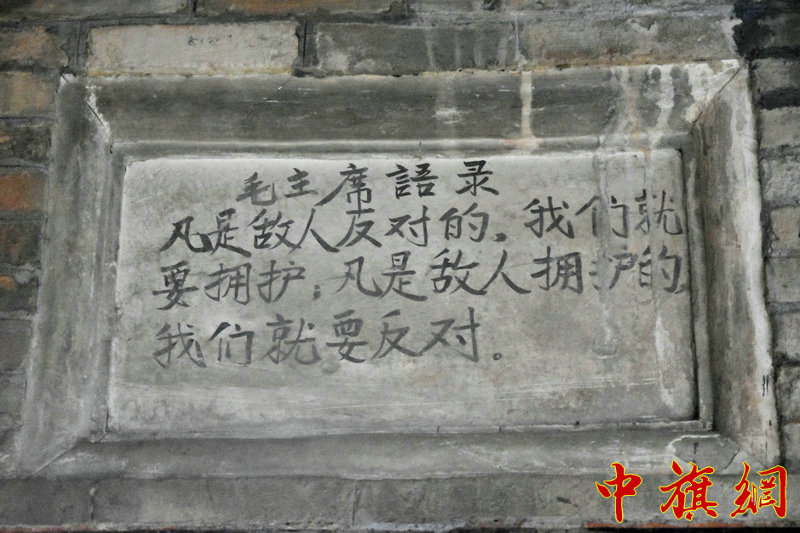 毛主席語录
凡是敌人反对的，我们就
要拥护；凡是敌人拥护的，
我们就要反对。
中旗網